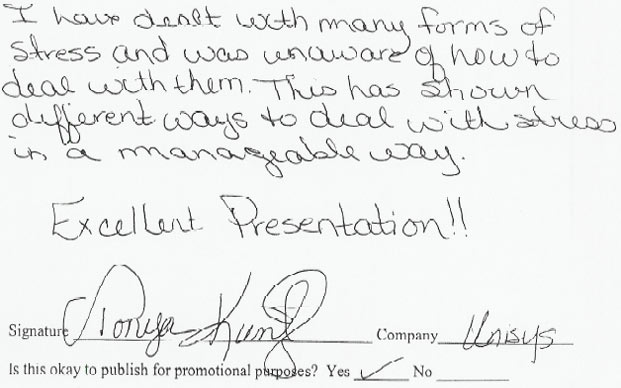 I have dealt with many forms of
stress and was unaware of how to
deal with them. This has shown
different ways to deal with stress
in a manageable way.
Excellent Presentation!!
Signature Tonya Company Unisys
Is this okay to publish for promotional purposes? Yes ✓ No